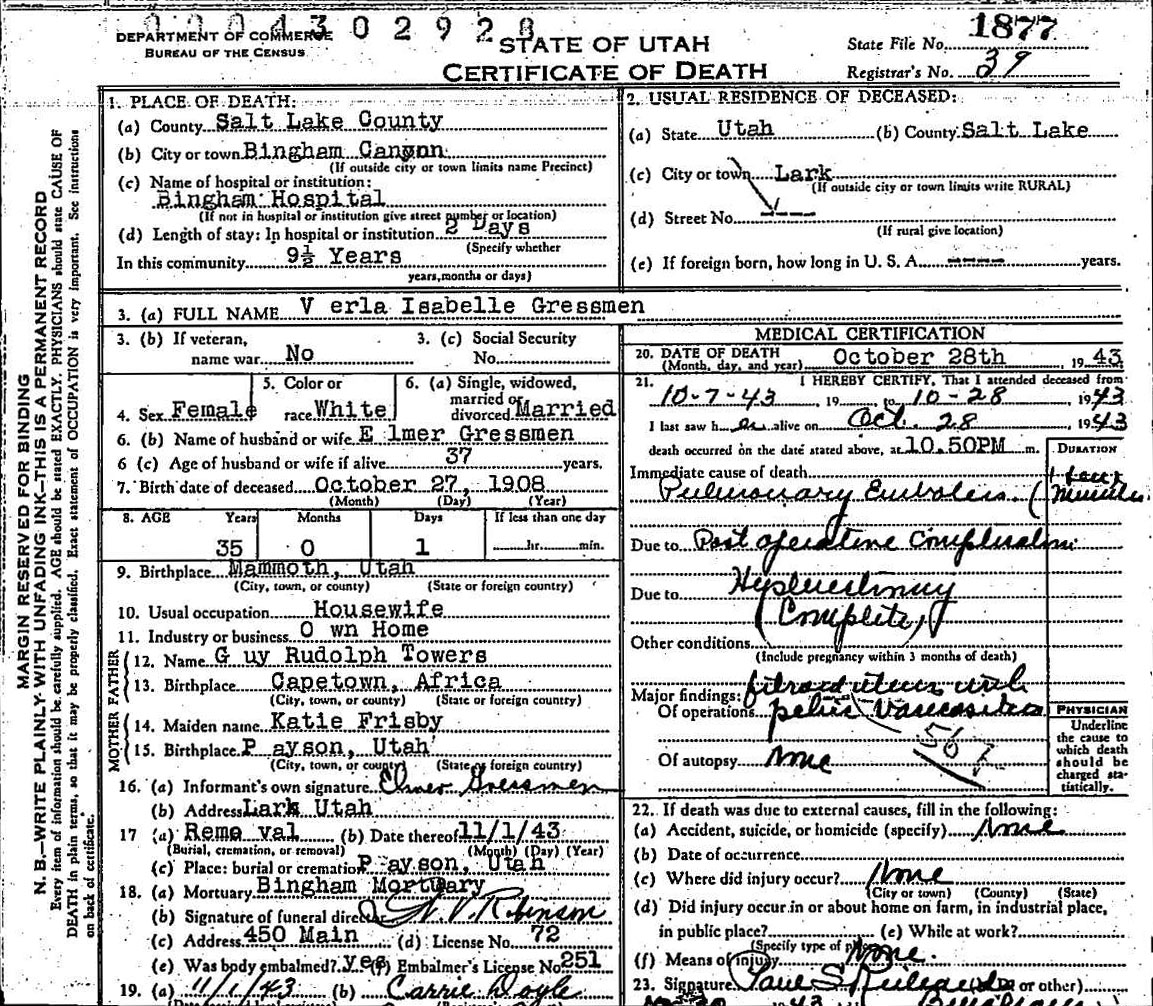 0004302928
DEPARTMENT OF COMMERCE
BUREAU OF THE CENSUS
STATE OF UTAH
CERTIFICATE OF DEATH
State File No. 1877
Registrar's No. 39
MARGIN RESERVED FOR BINDING
N. B.—WRITE PLAINLY WITH UNFADING INK—THIS IS A PERMANENT RECORD
Every item of information should be carefully supplied. AGE should be stated EXACTLY. PHYSICIANS should state CAUSE OF
DEATH in plain terms, so that it may be properly classified. Exact statement of OCCUPATION is very important. See instructions
on back of certificate.
1. PLACE OF DEATH:
(a) County Salt Lake County
(b) City or town Bingham Canyon
(If outside city or town limits name Precinct)
(c) Name of hospital or institution:
Bingham Hospital
(If not in hospital or institution give street number or location)
(d) Length of stay: In hospital or institution 2 Days
(Specify whether
In this community 9½ Years
years, months or days)
2. USUAL RESIDENCE OF DECEASED:
(a) State Utah (b) County Salt Lake
(c) City or town Lark
(If outside city or town limits write RURAL)
(d) Street No. ---
(If rural give location)
(e) If foreign born, how long in U. S. A. ---- years.
3. (a) FULL NAME V erla Isabelle Gressmen
3. (b) If veteran, name war No
3. (c) Social Security No.
4. Sex Female
5. Color or race White
6. (a) Single, widowed, married or divorced Married
6. (b) Name of husband or wife E lmer Gressmen
6 (c) Age of husband or wife if alive 37 years.
7. Birth date of deceased October 27, 1908
(Month) (Day) (Year)
8. AGE Years Months Days If less than one day
35 0 1 hr. min.
9. Birthplace Mammoth, Utah
(City, town, or county) (State or foreign country)
10. Usual occupation Housewife
11. Industry or business O wn Home
FATHER
12. Name G uy Rudolph Towers
13. Birthplace Capetown, Africa
(City, town, or county) (State or foreign country)
MOTHER
14. Maiden name Katie Frisby
15. Birthplace P ayson, Utah
(City, town, or county) (State or foreign country)
16. (a) Informant's own signature Elmer Gressmen
(b) Address Lark Utah
17 (a) Remo val (b) Date thereof 11/1/43
(Burial, cremation, or removal) (Month) (Day) (Year)
(c) Place: burial or cremation P ayson, Utah
18. (a) Mortuary Bingham Mortuary
(b) Signature of funeral director N. V. Robinson
(c) Address 450 Main (d) License No. 72
(e) Was body embalmed? yes (f) Embalmer's License No. 251
19. (a) 11/1/43 (b) Carrie Doyle
MEDICAL CERTIFICATION
20. DATE OF DEATH October 28th 1943
(Month, day, and year)
21. I HEREBY CERTIFY, That I attended deceased from
10-7-43, 19 to 10-28 1943
I last saw her alive on Oct. 28, 1943
death occurred on the date stated above, at 10.50PM m.
DURATION
Immediate cause of death
Pulmonary Embolus ( minutes
Due to Post operative Complication
Due to Hysterectomy
(Complete)
Other conditions
(Include pregnancy within 3 months of death)
Major findings: fibroid uterus with
Of operations pelvic varicosities
567
Of autopsy None
PHYSICIAN
Underline
the cause to
which death
should be
charged sta-
tistically.
22. If death was due to external causes, fill in the following:
(a) Accident, suicide, or homicide (specify) None
(b) Date of occurrence
(c) Where did injury occur? None
(City or town) (County) (State)
(d) Did injury occur in or about home on farm, in industrial place,
in public place? (e) While at work?
(Specify type of place)
(f) Means of injury None.
23. Signature Paul S. (M. D. or other)
43